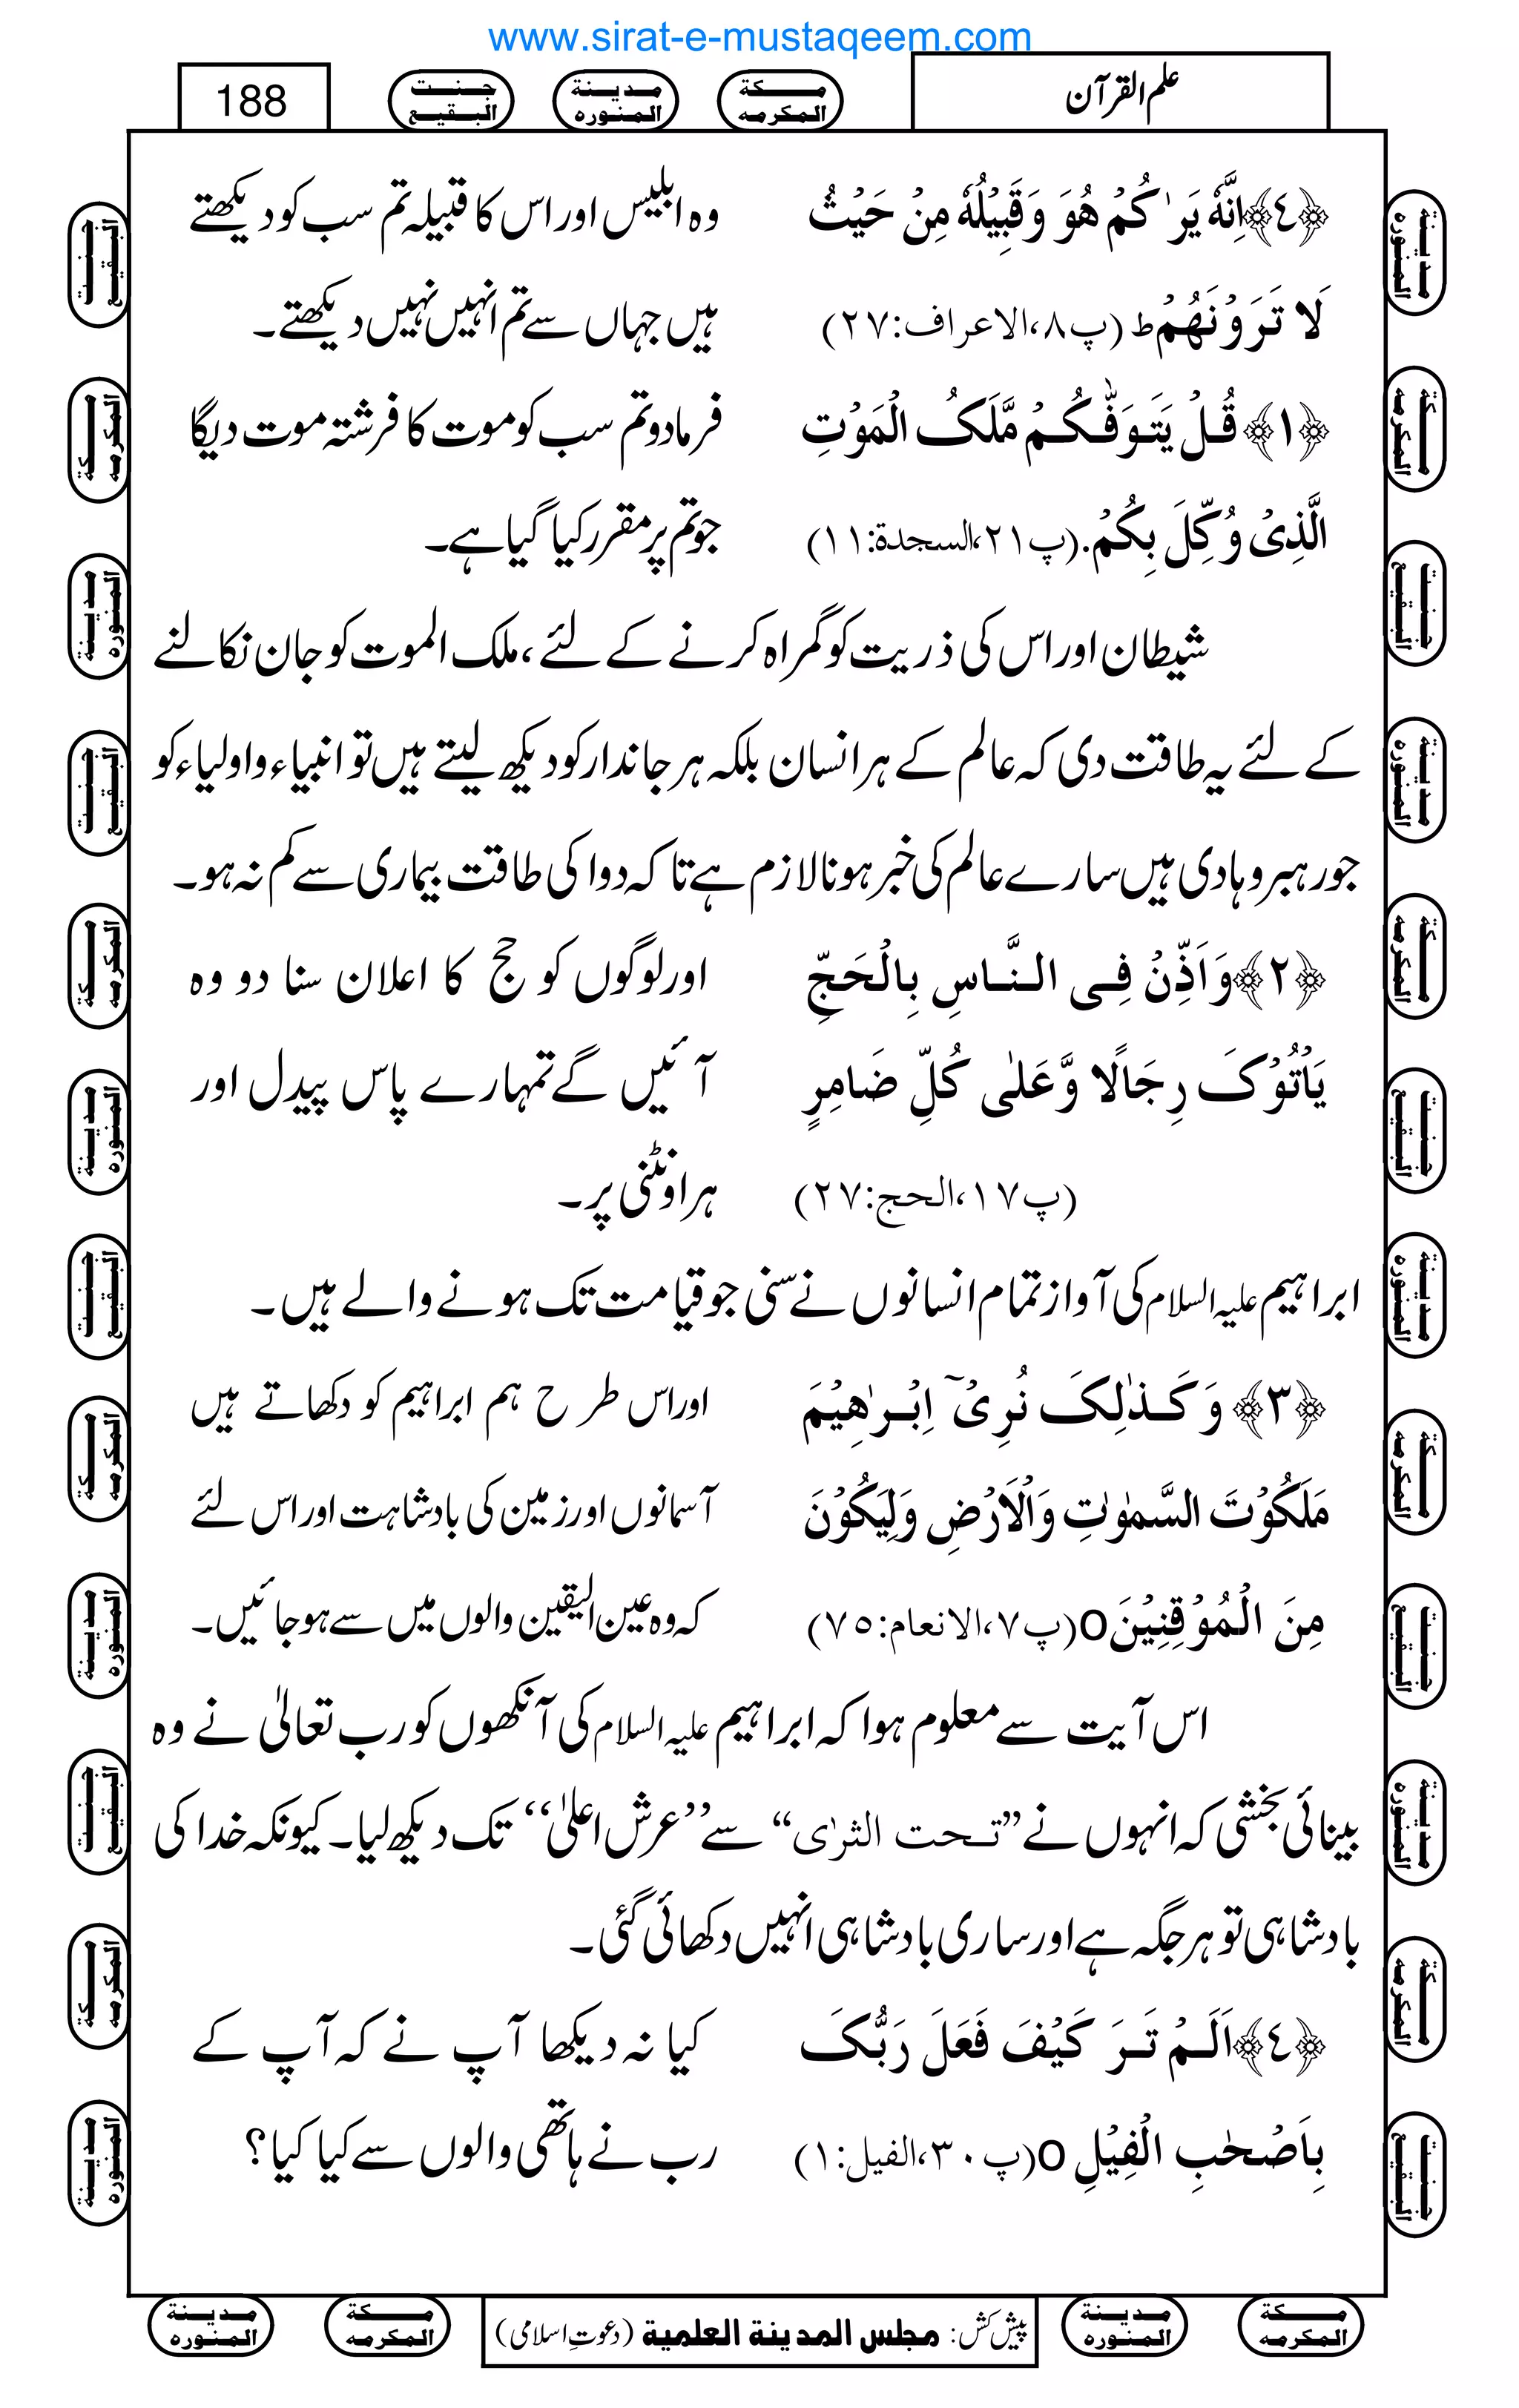 www.sirat-e-mustaqeem.com
علم القرآن
مکة المکرمه
مدینة المنوره
جنت البقیع
188
﴿٤﴾اِنَّهٗ یَرٰىكُمْ هُوَ وَقَبِیْلُهٗ مِنْ حَیْثُ وہ ابلیس اور اس کا قبیلہ تم سب کو دیکھتے
لَا تَرَوْنَهُمْط (پ٨،الاعراف:٢٧) ہیں جہاں سے تم انہیں نہیں دیکھتے۔
﴿١﴾ قُلْ یَتَوَفّٰكُمْ مَّلَكُ الْمَوْتِ فرمادو تم سب کو موت کا فرشتہ موت دیگا
الَّذِیْ وُكِّلَ بِكُمْ.(پ٢١،السجدة:١١) جو تم پر مقرر کیا گیا ہے۔
شیطان اور اس کی ذریت کو گمراہ کرنے کے لئے، ملک الموت کو جان نکالنے
کے لئے یہ طاقت دی کہ عالم کے ہر انسان بلکہ ہر جاندار کو دیکھ لیتے ہیں تو انبیاء و اولیاء کو
جو رہبر و ہادی ہیں سارے عالم کی خبر ہونا لازم ہے تاکہ دوا کی طاقت بیماری سے کم نہ ہو۔
﴿٢﴾وَاَذِّنْ فِی النَّاسِ بِالْحَجِّ اور لوگوں کو حج کا اعلان سنا دو وہ
یَاْتُوْكَ رِجَالًا وَّعَلٰی كُلِّ ضَامِرٍ آئیں گے تمہارے پاس پیدل اور
(پ١٧،الحج:٢٧) ہر اونٹنی پر۔
ابراہیم علیہ السلام کی آواز تمام انسانوں نے سنی جو قیامت تک ہونے والے ہیں۔
﴿٣﴾ وَكَذٰلِكَ نُرِیْۤ اِبْرٰهِیْمَ اور اس طرح ہم ابراہیم کو دکھاتے ہیں
مَلَكُوْتَ السَّمٰوٰتِ وَالْاَرْضِ وَلِیَكُوْنَ آسمانوں اور زمین کی بادشاہت اور اس لئے
مِنَ الْمُوْقِنِیْنَO(پ٧،الانعام:٧٥) کہ وہ عین الیقین والوں میں سے ہو جائیں۔
اس آیت سے معلوم ہوا کہ ابراہیم علیہ السلام کی آنکھوں کو رب تعالیٰ نے وہ
بینائی بخشی کہ انہوں نے ’’تحت الثرٰی‘‘ سے ’’عرش اعلیٰ‘‘ تک دیکھ لیا۔ کیونکہ خدا کی
بادشاہی تو ہر جگہ ہے اور ساری بادشاہی انہیں دکھائی گئی۔
﴿٤﴾اَلَمْ تَرَ كَیْفَ فَعَلَ رَبُّكَ کیا نہ دیکھا آپ نے کہ آپ کے
بِاَصْحٰبِ الْفِیْلِO(پ٣٠،الفیل:١) رب نے ہاتھی والوں سے کیا کیا؟
مکة المکرمه
مدینة المنوره
پیش کش: مجلس المدینة العلمیة (دعوتِ اسلامی)
مکة المکرمه
مدینة المنوره